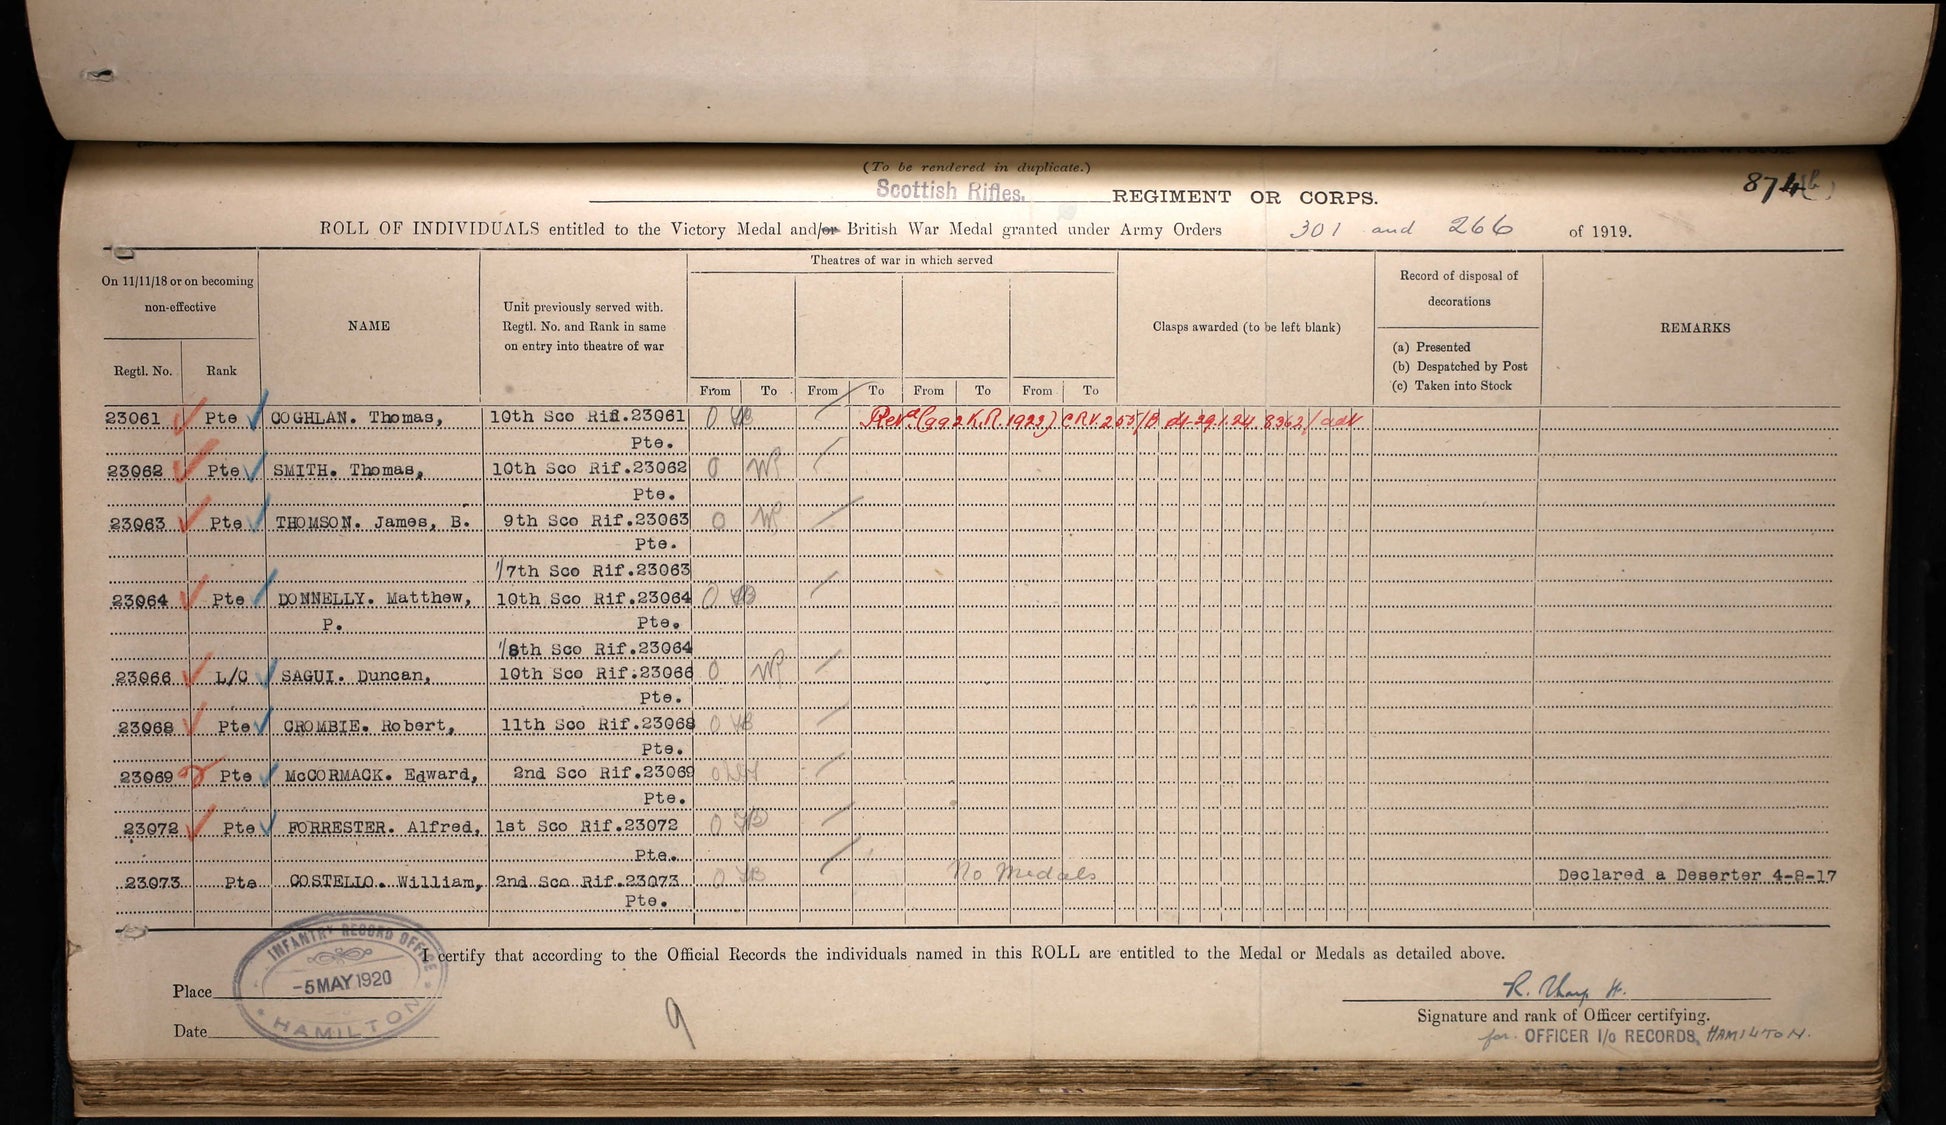 (To be rendered in duplicate.)
874
Scottish Rifles. REGIMENT OR CORPS.
ROLL OF INDIVIDUALS entitled to the Victory Medal and/or British War Medal granted under Army Orders 301 and 266 of 1919.
On 11/11/18 or on becoming non-effective
Regtl. No.
Rank
NAME
Unit previously served with.
Regtl. No. and Rank in same
on entry into theatre of war
Theatres of war in which served
From To From To From To From To
Clasps awarded (to be left blank)
Record of disposal of
decorations
(a) Presented
(b) Despatched by Post
(c) Taken into Stock
REMARKS
23061 Pte COGHLAN. Thomas, 10th Sco Rif.23061 (992 K.R. 1923)
Pte.
23062 Pte SMITH. Thomas, 10th Sco Rif.23062
Pte.
23063 Pte THOMSON. James, B. 9th Sco Rif.23063
Pte.
1/7th Sco Rif.23063
23064 Pte DONNELLY. Matthew, 10th Sco Rif.23064
P. Pte.
1/8th Sco Rif.23064
23066 L/C SAGUI. Duncan, 10th Sco Rif.23066
Pte.
23068 Pte CROMBIE. Robert, 11th Sco Rif.23068
Pte.
23069 Pte McCORMACK. Edward, 2nd Sco Rif.23069
Pte.
23072 Pte FORRESTER. Alfred, 1st Sco Rif.23072
Pte.
23073 Pte COSTELLO. William, 2nd Sco Rif.23073 No Medals Declared a Deserter 4-8-17
Pte.
I certify that according to the Official Records the individuals named in this ROLL are entitled to the Medal or Medals as detailed above.
INFANTRY RECORD OFFICE
-5 MAY 1920
HAMILTON
Place
Date
9
Signature and rank of Officer certifying.
for OFFICER I/c RECORDS, HAMILTON.